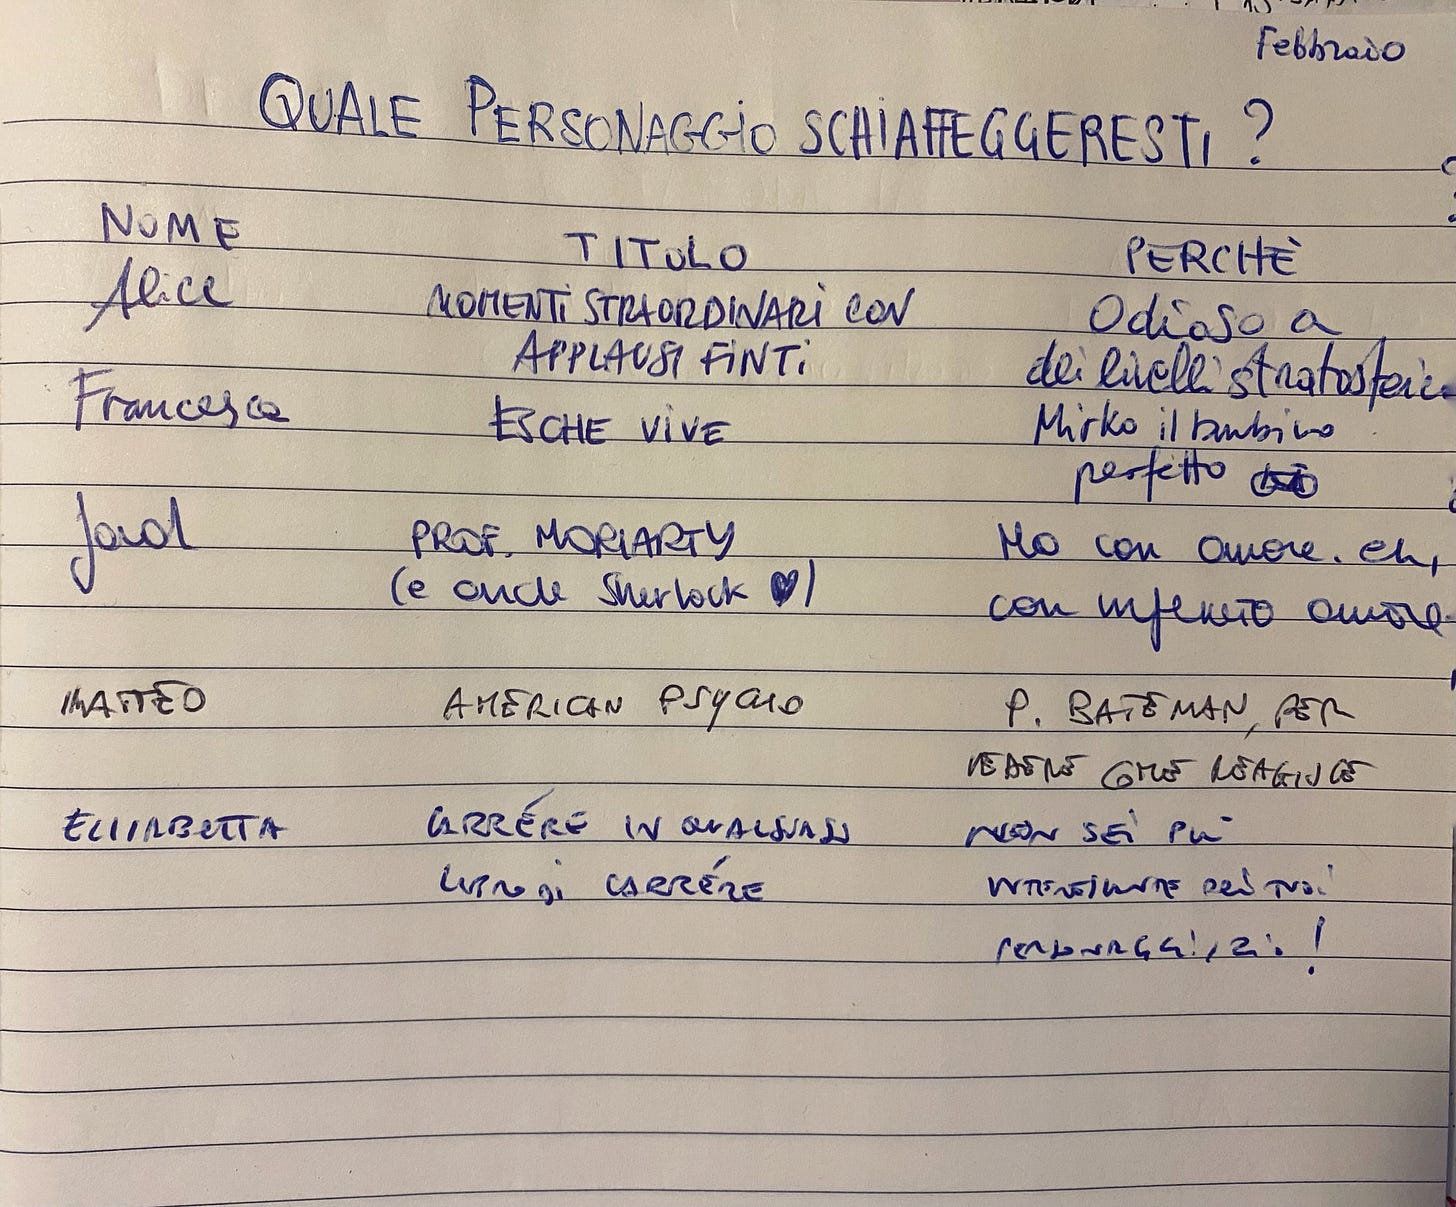 Febbraio
QUALE PERSONAGGIO SCHIAFFEGGERESTI?
NOME TITOLO PERCHÈ
Alice MOMENTI STRAORDINARI CON Odioso a
APPLAUSI FINTI dei livelli stratosferic
Francesca ESCHE VIVE Mirko il bambino
perfetto
PROF. MORIARTY Ma con amore. eh,
(e anche Sherlock ♥) con infinito amore
MATTEO AMERICAN PSYCHO P. BATEMAN, PER
VEDERE COME REAGISCE
ELISABETTA CARRÉRE IN QUALSIASI NON SEI PIÙ
LIBRO DI CARRÉRE INTERESSANTE DEI TUOI
PERSONAGGI, ZI.!